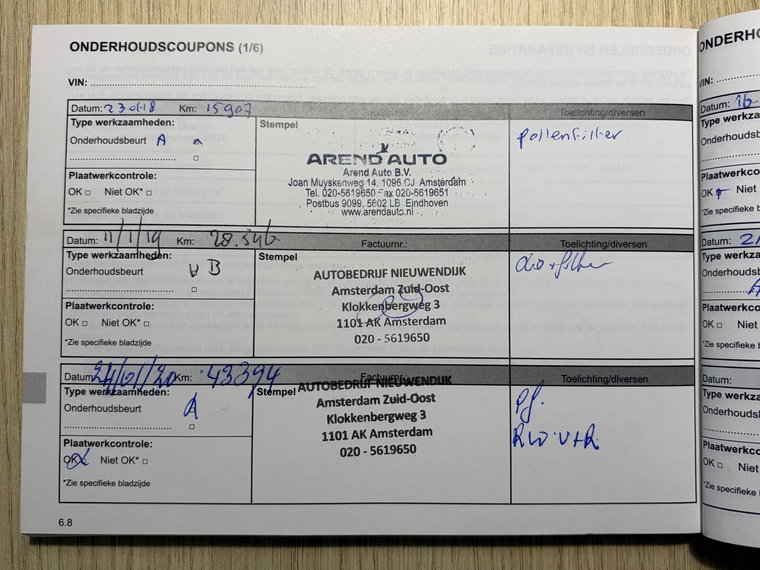 ONDERHOUDSCOUPONS (1/6)
VIN:
Datum: 23 01 18 Km: 15907
Toelichting/diversen
Type werkzaamheden:
Onderhoudsbeurt A
Plaatwerkcontrole:
OK □ Niet OK* □
*Zie specifieke bladzijde
Stempel
AREND AUTO
Arend Auto B.V.
Joan Muyskenweg 14, 1096 CJ Amsterdam
Tel. 020-5619650 Fax 020-5619651
Postbus 9099, 5602 LB Eindhoven
www.arendauto.nl
pollenfilter
Datum: 11/1/19 Km: 28.346
Factuurnr.:
Toelichting/diversen
Type werkzaamheden:
Onderhoudsbeurt B
Plaatwerkcontrole:
OK □ Niet OK* □
*Zie specifieke bladzijde
Stempel
AUTOBEDRIJF NIEUWENDIJK
Amsterdam Zuid-Oost
Klokkenbergweg 3
1101 AK Amsterdam
020 - 5619650
Datum: 24/01/20 Km: 43394
Factuurnr.:
Toelichting/diversen
Type werkzaamheden:
Onderhoudsbeurt A
Plaatwerkcontrole:
OK □ Niet OK* □
*Zie specifieke bladzijde
Stempel
AUTOBEDRIJF NIEUWENDIJK
Amsterdam Zuid-Oost
Klokkenbergweg 3
1101 AK Amsterdam
020 - 5619650
Pf.
6.8
ONDERHO
VIN:
Datum: 16
Type werkza
Onderhoudsb
Plaatwerkco
OK Niet
*Zie specifieke b
Datum: 21
Type werkza
Onderhoudsb
Plaatwerkco
OK □ Niet
*Zie specifieke b
Datum:
Type werkza
Onderhoudsb
Plaatwerkco
OK □ Niet
*Zie specifieke